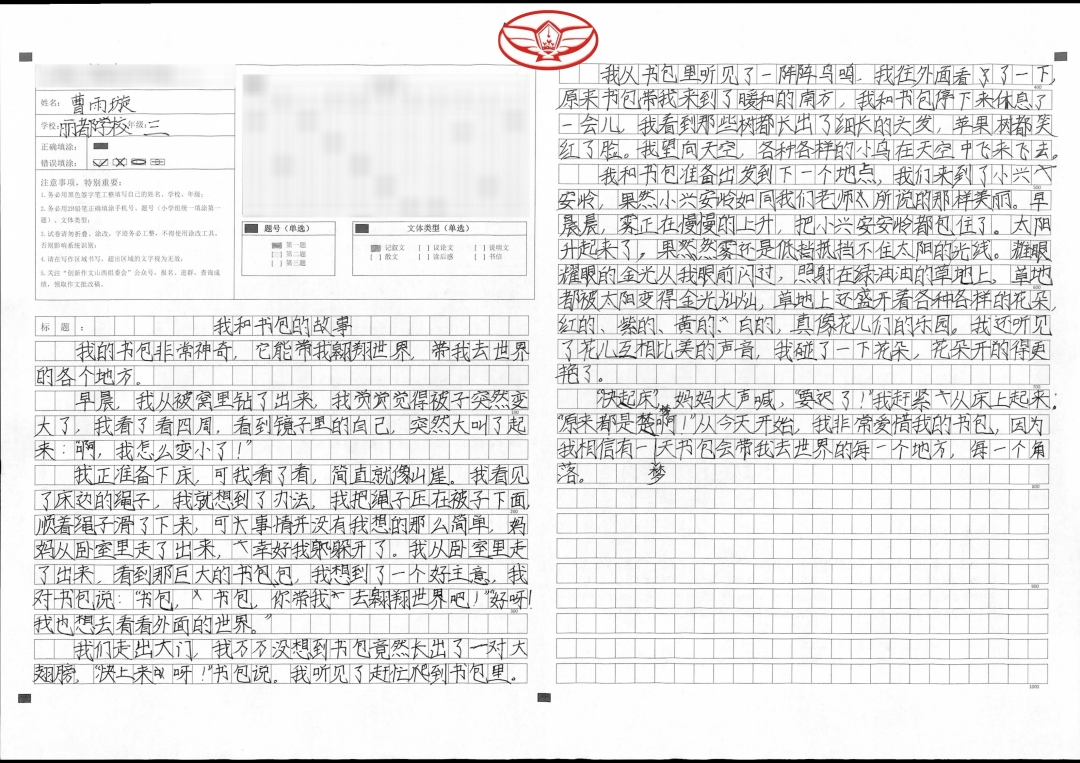 姓名：曹雨漩
学校：丽都学校 年级：三
正确填涂：
错误填涂：
注意事项，特别重要：
1.务必用黑色签字笔工整填写自己的姓名、学校、年级；
2.务必用2B铅笔正确填涂手机号、题号（小学组统一填涂第一
题）、文体类型；
3.试卷请勿折叠、涂改，字迹务必工整，不得使用涂改工具，
否则影响系统识别；
4.请在写作区域书写，超出区域的文字视为无效；
5.关注“创新作文山西组委会”公众号，报名、进群、查询成
绩，领取作文批改稿。
题号（单选）
第一题
第二题
第三题
文体类型（单选）
记叙文 [ ] 议论文 [ ] 说明文
[ ] 散文 [ ] 读后感 [ ] 书信
标题： 我和书包的故事
我的书包非常神奇，它能带我翱翔世界，带我去世界
的各个地方。
早晨，我从被窝里钻了出来，我觉觉觉得被子突然变
大了，我看了看四周，看到镜子里的自己，突然大叫了起
来：“啊，我怎么变小了！”
我正准备下床，可我看了看，简直就像山崖。我看见
了床边的绳子，我就想到了办法，我把绳子压在被子下面，
顺着绳子滑了下来，可大事情并没有我想的那么简单，妈
妈从卧室里走了出来，幸好我躲躲开了。我从卧室里走
了出来，看到那巨大的书包包，我想到了一个好主意，我
对书包说：“书包，书包，你带我去翱翔世界吧！”“好呀！
我也想去看看外面的世界。”
我们走出大门，我万万没想到书包竟然长出了一对大
翅膀，“快上来呀！”书包说。我听见了赶忙爬到书包里。
我从书包里听见了一阵阵鸟鸣，我往外面看了了一下，
原来书包带我来到了暖和的南方，我和书包停下来休息了
一会儿，我看到那些树都长出了细长的头发，苹果树都笑
红了脸。我望向天空，各种各样的小鸟在天空中飞来飞去。
我和书包准备出发到下一个地点，我们来到了小兴
安岭，果然小兴安岭如同我们老师所说的那样美丽。早
晨晨，雾正在慢慢的上升，把小兴安安岭都包住了。太阳
升起来了，果然然雾还是低挡抵挡不住太阳的光线。耀眼
耀眼的金光从我眼前闪过，照射在绿油油的草地上。草地
都被太阳变得金光灿灿，草地上还盛开着各种各样的花朵，
红的、紫的、黄的、白的，真像花儿们的乐园。我还听见
了花儿互相比美的声音，我碰了一下花朵，花朵开的得更
艳了。
“快起床”，妈妈大声喊，“要迟了！”我赶紧从床上起来：
“原来都是梦啊！”从今天开始，我非常爱惜我的书包，因为
我相信有一天书包会带我去世界的每一个地方，每一个角
落。 梦